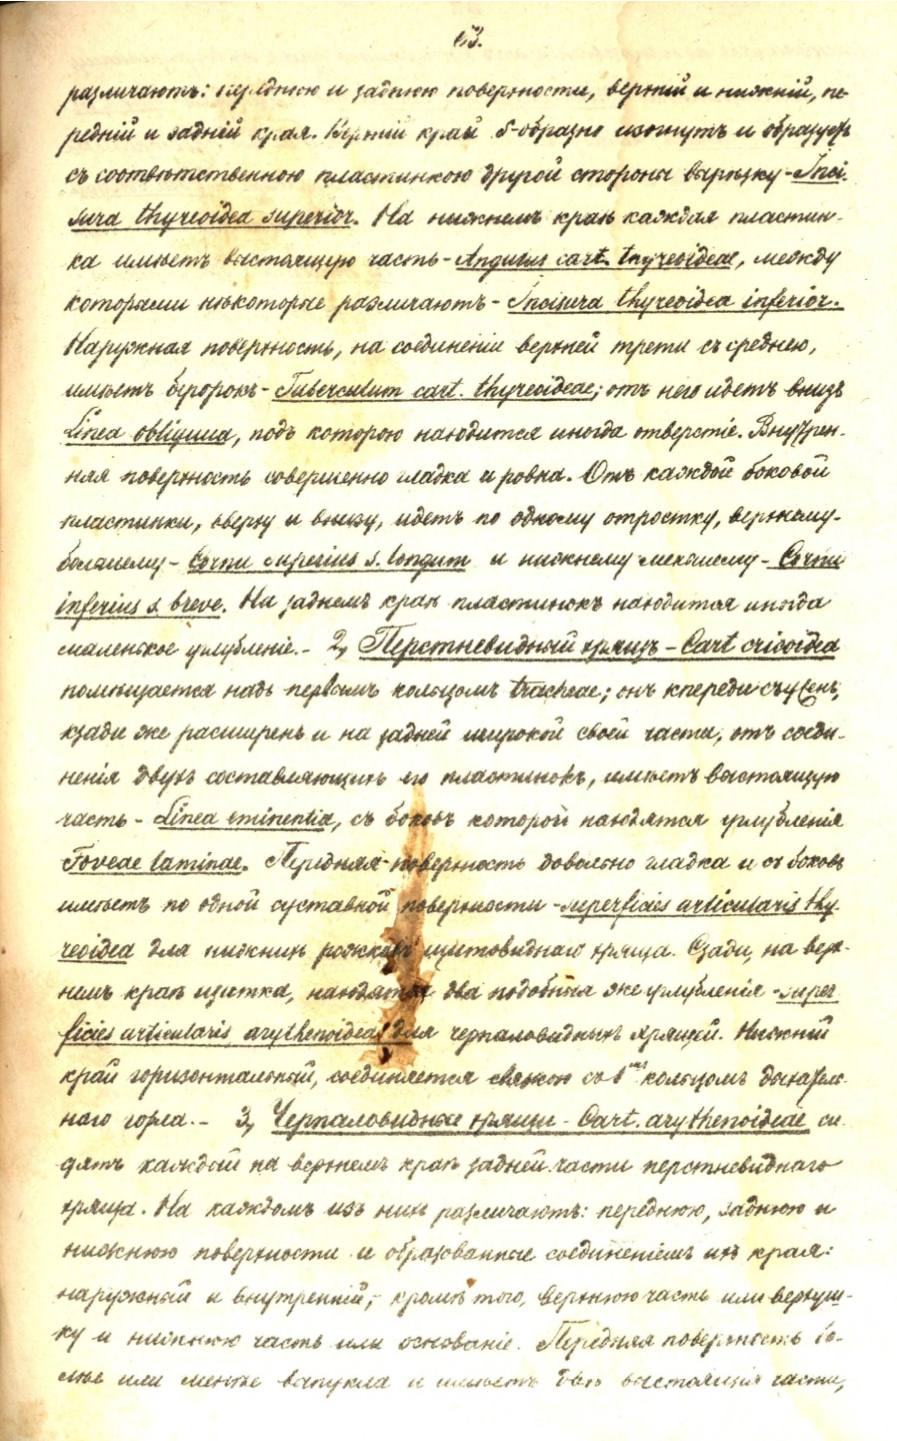 53.
различаютъ: переднюю и заднюю поверхности, верхній и нижній, пе-
редній и задній края. Верхній край S-образно изогнутъ и образуетъ
съ соотвѣтственною пластинкою другой стороны вырѣзку - Inci-
sura thyreoidea superior. На нижнемъ краѣ каждая пластин-
ка имѣетъ выстоящую часть - Angulus cart. thyreoideae, между
которыми нѣкоторые различаютъ - Incisura thyreoidea inferior.
Наружная поверхность, на соединеніи верхней трети съ среднею,
имѣетъ бугорокъ - Tuberculum cart. thyreoideae; отъ него идетъ внизъ
Linea obliqua, подъ которою находится иногда отверстіе. Внутрен-
няя поверхность совершенно гладка и ровна. Отъ каждой боковой
пластинки, вверху и внизу, идетъ по одному отростку, верхнему-
большему - Cornu superius s. longum и нижнему меньшему - Cornu
inferius s. breve. На заднемъ краѣ пластинокъ находится иногда
маленькое углубленіе. - 2, Перстневидный хрящъ - Cart cricoidea
помѣщается надъ первымъ кольцомъ tracheae; онъ кпереди съуженъ,
кзади же расширенъ и на задней широкой своей части, отъ соеди-
ненія двухъ составляющихъ его пластинокъ, имѣетъ выстоящую
часть - Linea eminentia, съ боковъ которой находятся углубленія
Foveae laminae. Передняя поверхность довольно гладка и съ боковъ
имѣетъ по одной суставной поверхности - superficies articularis thy-
reoidea для нижнихъ рожковъ щитовиднаго хряща. Сзади, на верх-
немъ краѣ щитка, находятся два подобныя же углубленія - super
ficies articularis arythenoideae для черпаловидныхъ хрящей. Нижній
край горизонтальный, соединяется связкою со 1 кольцомъ дыхатель-
наго горла. - 3, Черпаловидные хрящи - Cart. arythenoideae си-
дятъ каждый на верхнемъ краѣ задней части перстневиднаго
хряща. На каждомъ изъ нихъ различаютъ: переднюю, заднюю и
нижнюю поверхности и образованные соединеніемъ ихъ края:
наружный и внутренній; кромѣ того, верхнюю часть или верхуш-
ку и нижнюю часть или основаніе. Передняя поверхность бо-
лѣе или менѣе выпукла и имѣетъ двѣ выстоящія части,